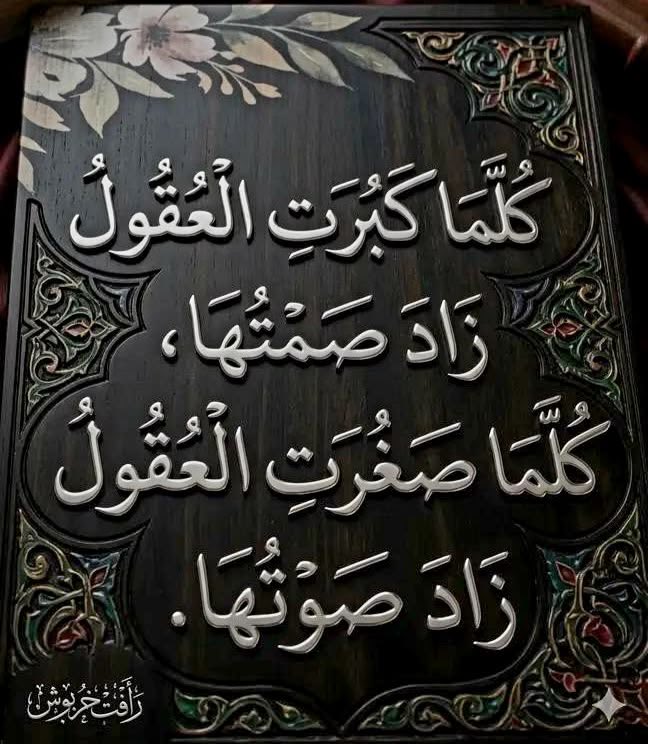 كُلَّمَا كَبُرَتِ الْعُقُولُ
زَادَ صَمْتُهَا،
كُلَّمَا صَغُرَتِ الْعُقُولُ
زَادَ صَوْتُهَا.
رَأَفَتْ خَرْبُوش